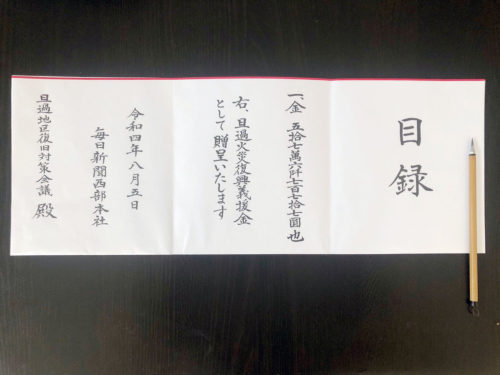 目録
一、金 五拾七萬六阡七百七拾七圓也
右、旦過火災復興義援金
として贈呈いたします
令和四年八月五日
毎日新聞西部本社
旦過地区復旧対策会議 殿